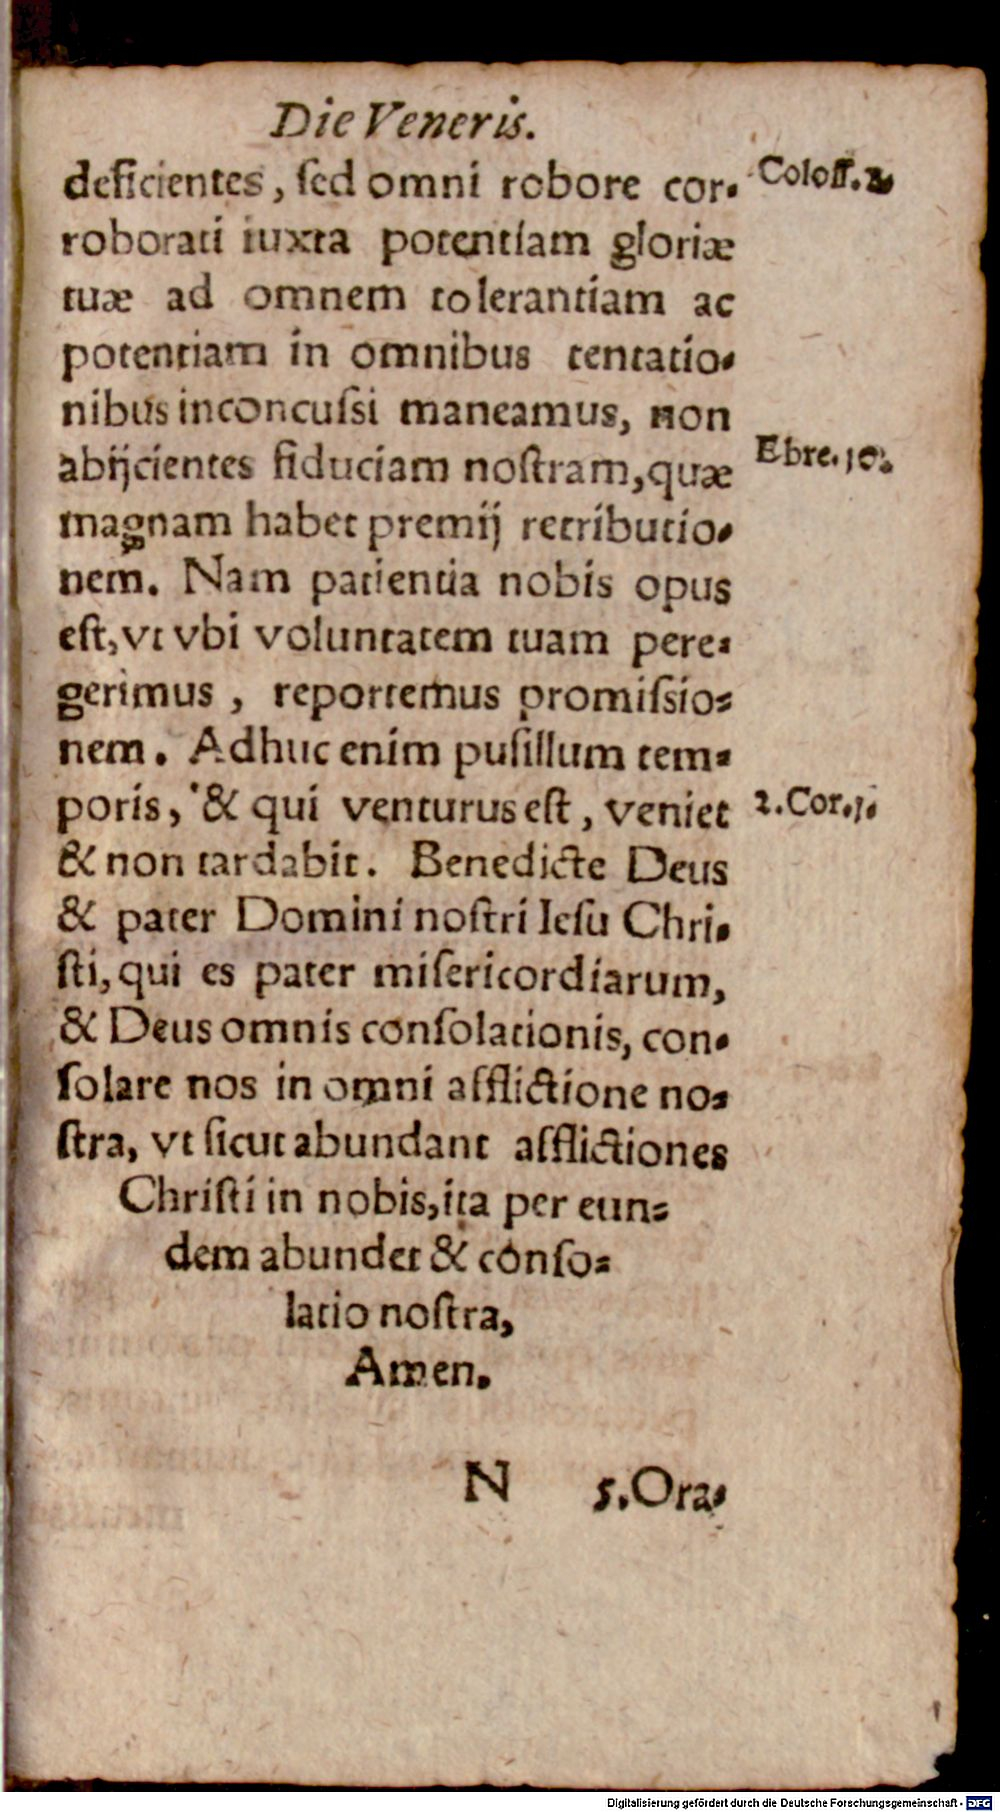 Die Veneris.
deficientes, ſed omni robore cor-
Coloſſ. 2.
roborati iuxta potentiam gloriæ
tuæ ad omnem tolerantiam ac
potentiam in omnibus tentatio-
nibus inconcuſsi maneamus, non
abijcientes fiduciam noſtram, quæ
Ebre. 10.
magnam habet premij retributio-
nem. Nam patientia nobis opus
eſt, vt vbi voluntatem tuam pere-
gerimus, reportemus promiſsio-
nem. Adhuc enim puſillum tem-
poris, & qui venturus eſt, veniet
2. Cor. 1.
& non tardabit. Benedicte Deus
& pater Domini noſtri Ieſu Chri-
ſti, qui es pater miſericordiarum,
& Deus omnis conſolationis, con-
ſolare nos in omni afflictione no-
ſtra, vt ſicut abundant afflictiones
Chriſti in nobis, ita per eun-
dem abundet & conſo-
latio noſtra,
Amen.
N 5. Ora-
Digitalisierung gefördert durch die Deutsche Forschungsgemeinschaft - DFG